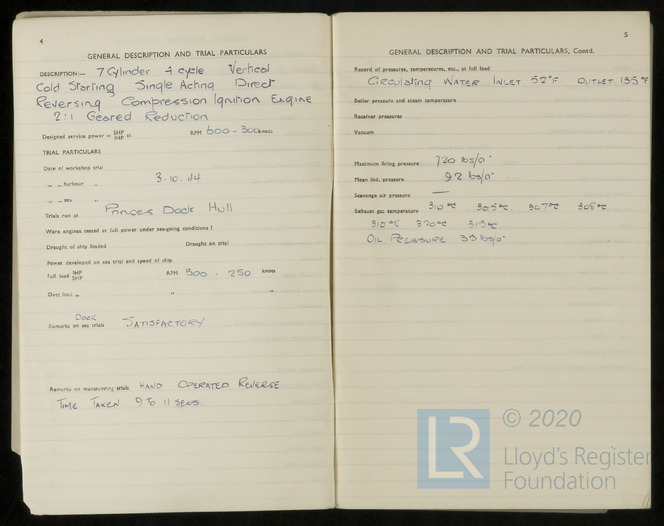 4
GENERAL DESCRIPTION AND TRIAL PARTICULARS
DESCRIPTION:— 7 Cylinder 4 cycle Vertical
Cold Starting Single Acting Direct
Reversing Compression Ignition Engine
2:1 Geared Reduction
Designed service power = SHP IHP at RPM 600 - 300 knots
TRIAL PARTICULARS
Date of workshop trial
„ „ harbour „ 3.10.44
„ „ sea „
Trials run at Princes Dock Hull
Were engines tested at full power under sea-going conditions?
Draught of ship loaded Draught on trial
Power developed on sea trial and speed of ship
Full load RPM 500 - 250 knots
Over load „ „ „
Dock
Remarks on sea trials SATISFACTORY
Remarks on manœuvring trials HAND OPERATED REVERSE
TIME TAKEN 9 TO 11 SECS.
5
GENERAL DESCRIPTION AND TRIAL PARTICULARS, Contd.
Record of pressures, temperatures, etc., at full load
Circulating WATER INLET 52°F OUTLET 135°F
Boiler pressure and steam temperature
Receiver pressures
Vacuum
Maximum firing pressure 720 lbs/□"
Mean Ind. pressure 92 lbs/□"
Scavenge air pressure —
Exhaust gas temperature 310°C 305°C 307°C 308°C
310°C 320°C 315°C
OIL PRESSURE 35 lbs/□"
© 2020
LR
Lloyd's Register
Foundation